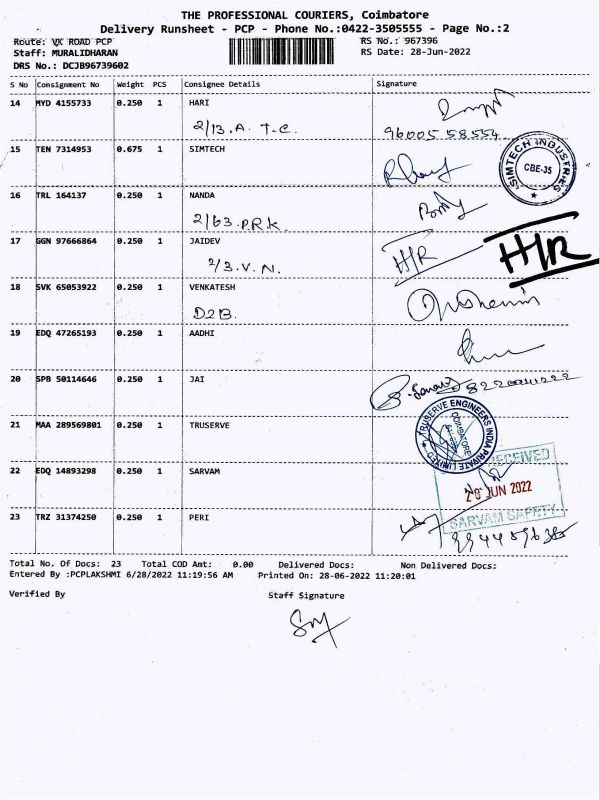 THE PROFESSIONAL COURIERS, Coimbatore
Delivery Runsheet - PCP - Phone No.:0422-3505555 - Page No.:2
Route: VK ROAD PCP RS No.: 967396
Staff: MURALIDHARAN RS Date: 28-Jun-2022
DRS No.: DCJB96739602
S No Consignment No Weight PCS Consignee Details Signature
14 MYD 4155733 0.250 1 HARI
2/13.A. T.C. 96005 58554
15 TEN 7314953 0.675 1 SIMTECH
SIMTECH INDUSTRIES
CBE-35
16 TRL 164137 0.250 1 NANDA
2/63.P.R.K.
17 GGN 97666864 0.250 1 JAIDEV H/R H/R
2/3.V.N.
18 SVK 65053922 0.250 1 VENKATESH
D2B.
19 EDQ 47265193 0.250 1 AADHI
20 SPB 50114646 0.250 1 JAI
21 MAA 289569801 0.250 1 TRUSERVE
TRUSERVE ENGINEERS INDIA PRIVATE LIMITED
COIMBATORE
22 EDQ 14893298 0.250 1 SARVAM
RECEIVED
28 JUN 2022
SARVAM SAFETY
23 TRZ 31374250 0.250 1 PERI
Total No. Of Docs: 23 Total COD Amt: 0.00 Delivered Docs: Non Delivered Docs:
Entered By :PCPLAKSHMI 6/28/2022 11:19:56 AM Printed On: 28-06-2022 11:20:01
Verified By Staff Signature